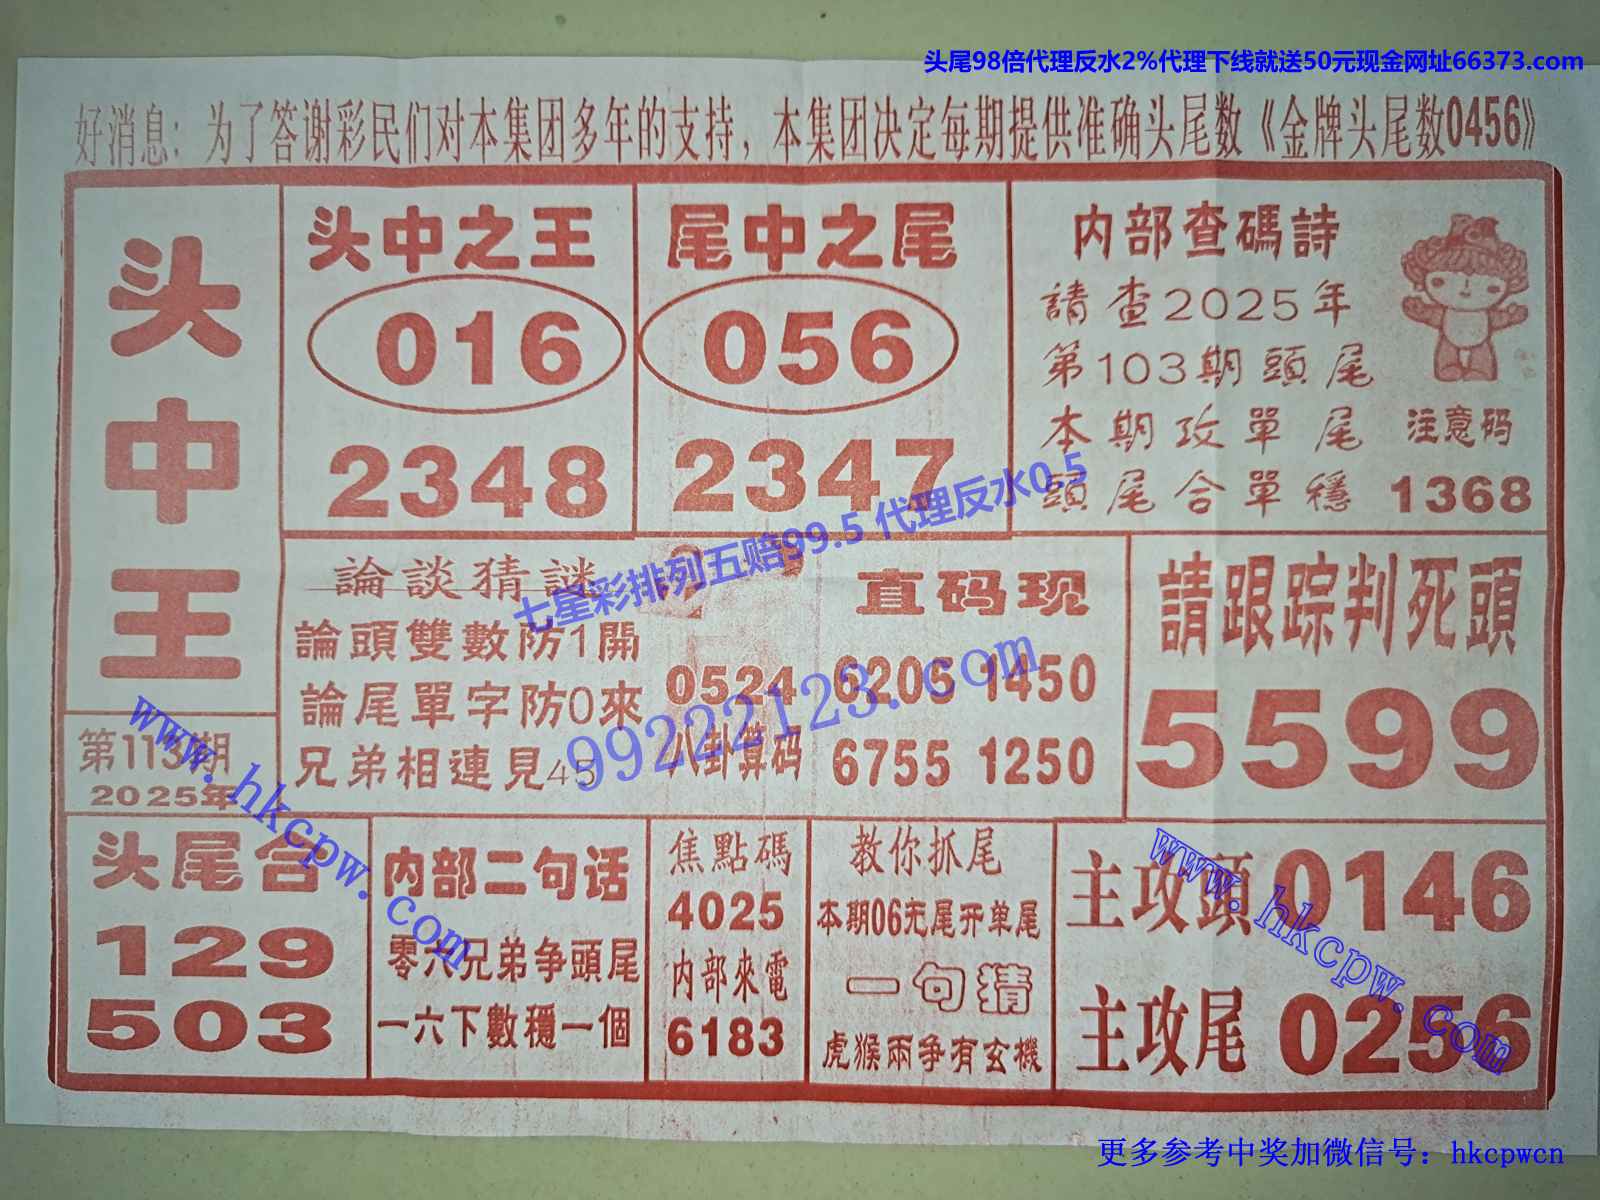 头尾98倍代理反水2%代理下线就送50元现金网址66373.com
好消息：为了答谢彩民们对本集团多年的支持，本集团决定每期提供准确头尾数《金牌头尾数0456》
头中王
第113期
2025年
头中之王
016
2348
尾中之尾
056
2347
内部查碼詩
請查2025年
第103期頭尾
本期攻單尾
頭尾合單穩
注意码
1368
七星彩排列五赔99.5 代理反水0.5
論談猜謎
論頭雙數防1開
論尾單字防0來
兄弟相連見45
直码现
0524 6205 1450
八卦算码 6755 1250
99222123.com
請跟踪判死頭
5599
www.hkcpw.com
头尾合
129
503
内部二句话
零六兄弟争頭尾
一六下數穩一個
焦點碼
4025
内部來電
6183
教你抓尾
本期06无尾开单尾
一句猜
虎猴兩争有玄機
主攻頭0146
主攻尾0256
www.hkcpw.com
更多参考中奖加微信号：hkcpwcn